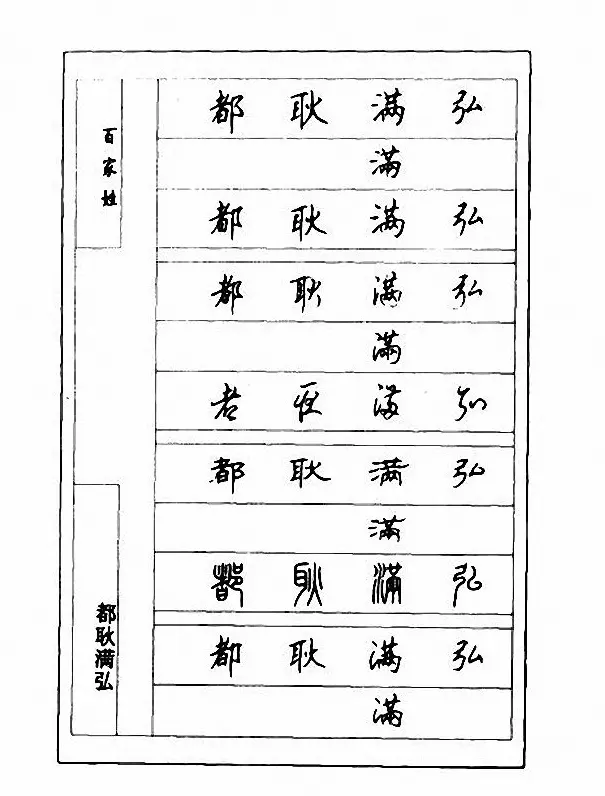 百家姓
都耿满弘
都 耿 满 弘
滿
都 耿 满 弘
都 耿 满 弘
滿
都 耿 满 弘
都 耿 满 弘
滿
都 耿 滿 弘
都 耿 满 弘
滿